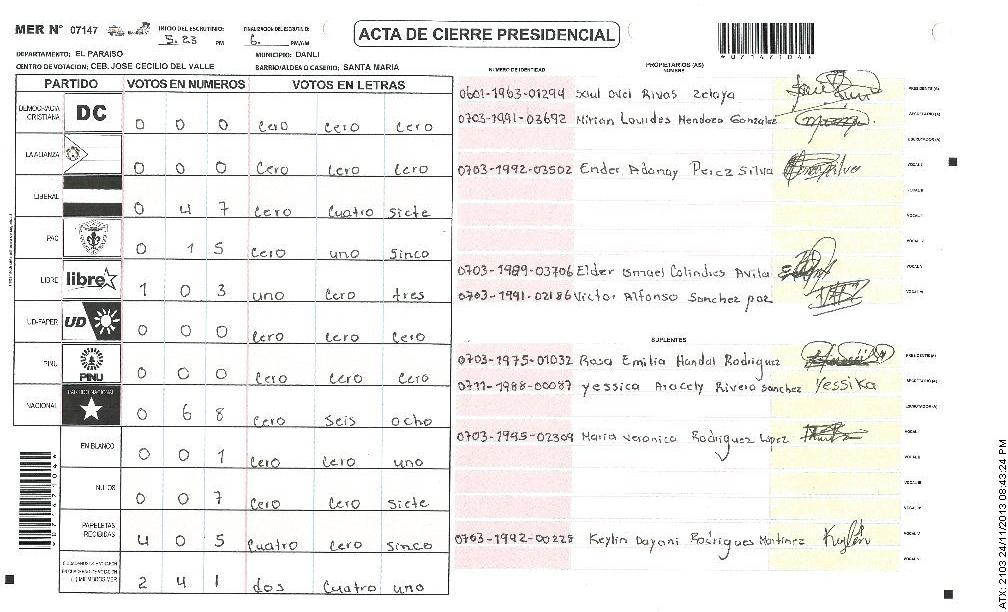 MER N° 07147
INICIO DEL ESCRUTINIO: 5:23 PM
FINALIZACION DEL ESCRUTINIO: 6: PM/AM
ACTA DE CIERRE PRESIDENCIAL
DEPARTAMENTO: EL PARAISO
MUNICIPIO: DANLI
CENTRO DE VOTACION: CEB. JOSE CECILIO DEL VALLE
BARRIO/ALDEA O CASERIO: SANTA MARIA
PARTIDO VOTOS EN NUMEROS VOTOS EN LETRAS
DEMOCRACIA CRISTIANA DC 0 0 0 Cero Cero Cero
LA ALIANZA 0 0 0 Cero Cero Cero
LIBERAL 0 4 7 Cero Cuatro Siete
PAC 0 1 5 Cero uno Sinco
LIBRE libre 1 0 3 uno Cero tres
UD-FAPER UD 0 0 0 Cero Cero Cero
PINU PINU 0 0 0 Cero Cero Cero
NACIONAL PARTIDO NACIONAL 0 6 8 Cero Seis ocho
EN BLANCO 0 0 1 Cero Cero uno
NULOS 0 0 7 Cero Cero Siete
PAPELETAS RECIBIDAS 4 0 5 Cuatro Cero Sinco
2 4 1 dos Cuatro uno
NUMERO DE IDENTIDAD
PROPIETARIOS (AS)
NOMBRE
0601-1963-01294 Saul Ovel Rivas Zelaya PRESIDENTE (A)
0703-1991-03692 Mirian Lourdes Mendoza Gonzalez SECRETARIO (A)
ESCRUTADOR (A)
0703-1992-03502 Ender Adonay Perez Silva VOCAL I
VOCAL II
0703-1989-03706 Elder Ismael Colindres Avila
0703-1991-02186 Victor Alfonso Sanchez paz
SUPLENTES
0703-1975-01032 Rosa Emilia Handal Rodriguez PRESIDENTE (A)
0711-1988-00087 yessica Aracely Rivera Sanchez Yessika SECRETARIO (A)
ESCRUTADOR (A)
0703-1995-02309 Maria Veronica Rodriguez Lopez VOCAL I
VOCAL II
VOCAL III
0703-1992-00228 Keylin Dayani Rodrigues Martinez Keylin
ATX: 2103 24/11/2013 08:43:24 PM